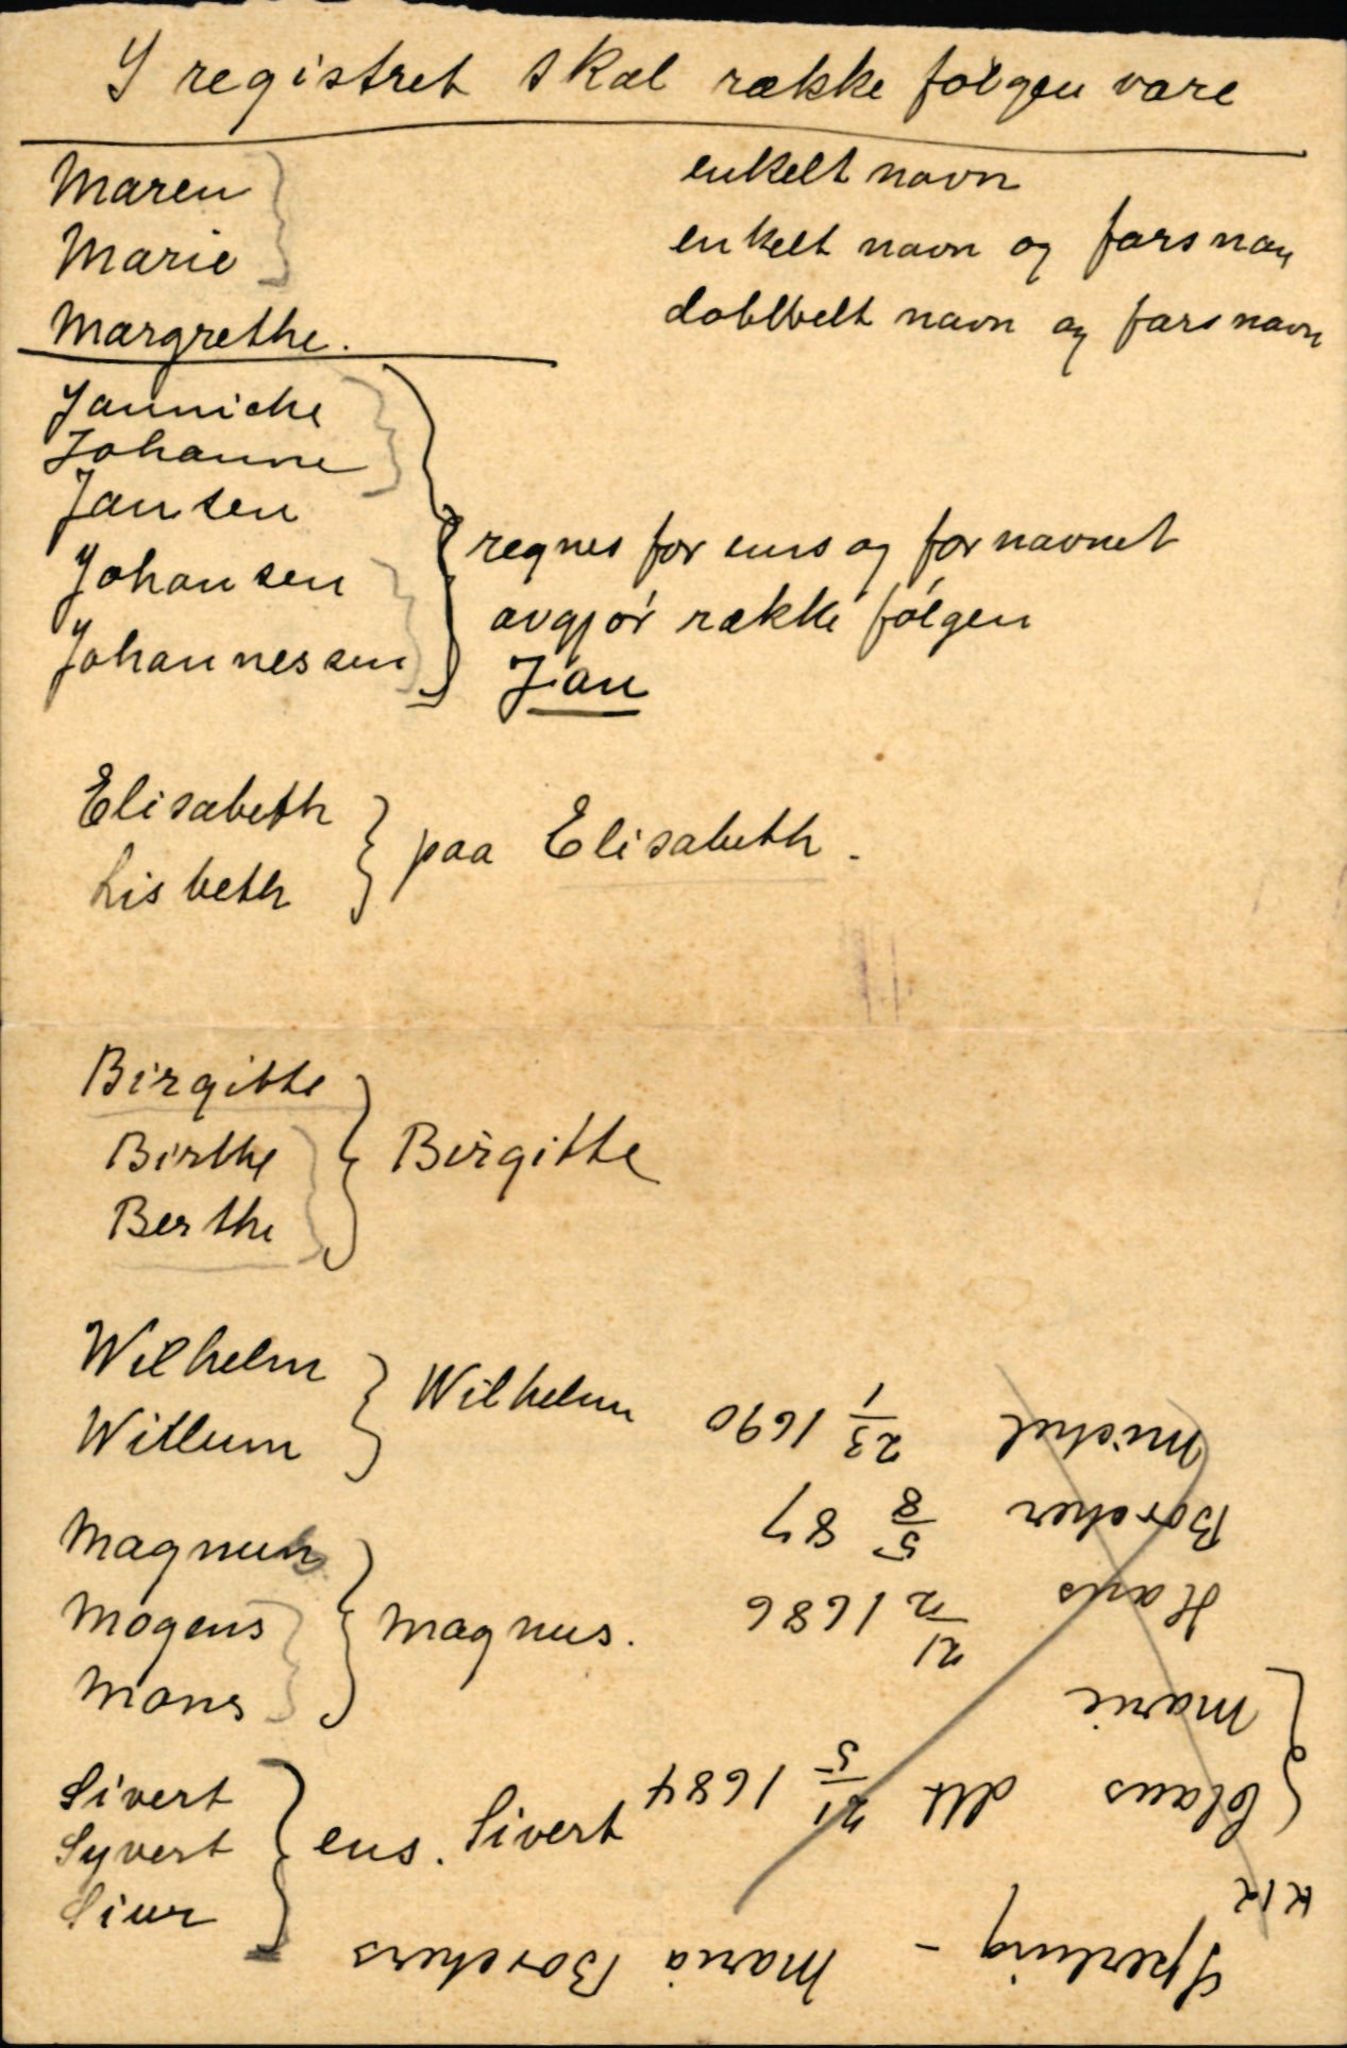 I registret skal række følgen være
Maren
Marie
Margrethe.
enkelt navn
enkelt navn og farsnavn
dobbelt navn og farsnavn
Jannicke
Johanne
Jansen
Johansen
Johannessen
regnes for ens og fornavnet
avgjør række følgen
Jan
Elisabeth
Lisbeth
paa Elisabeth.
Birgitte
Birthe
Berthe
Birgitte
Wilhelm
Willum
Wilhelm
Magnus
Mogens
Mons
Magnus.
Sivert
Syvert
Siur
ens. Sivert
Sperling - Maria Borchers
K12
Claus dtt 21/5 1684
Marie
Hans 21/2 1686
Borcher 5/8 87
Michel 23/1 1690